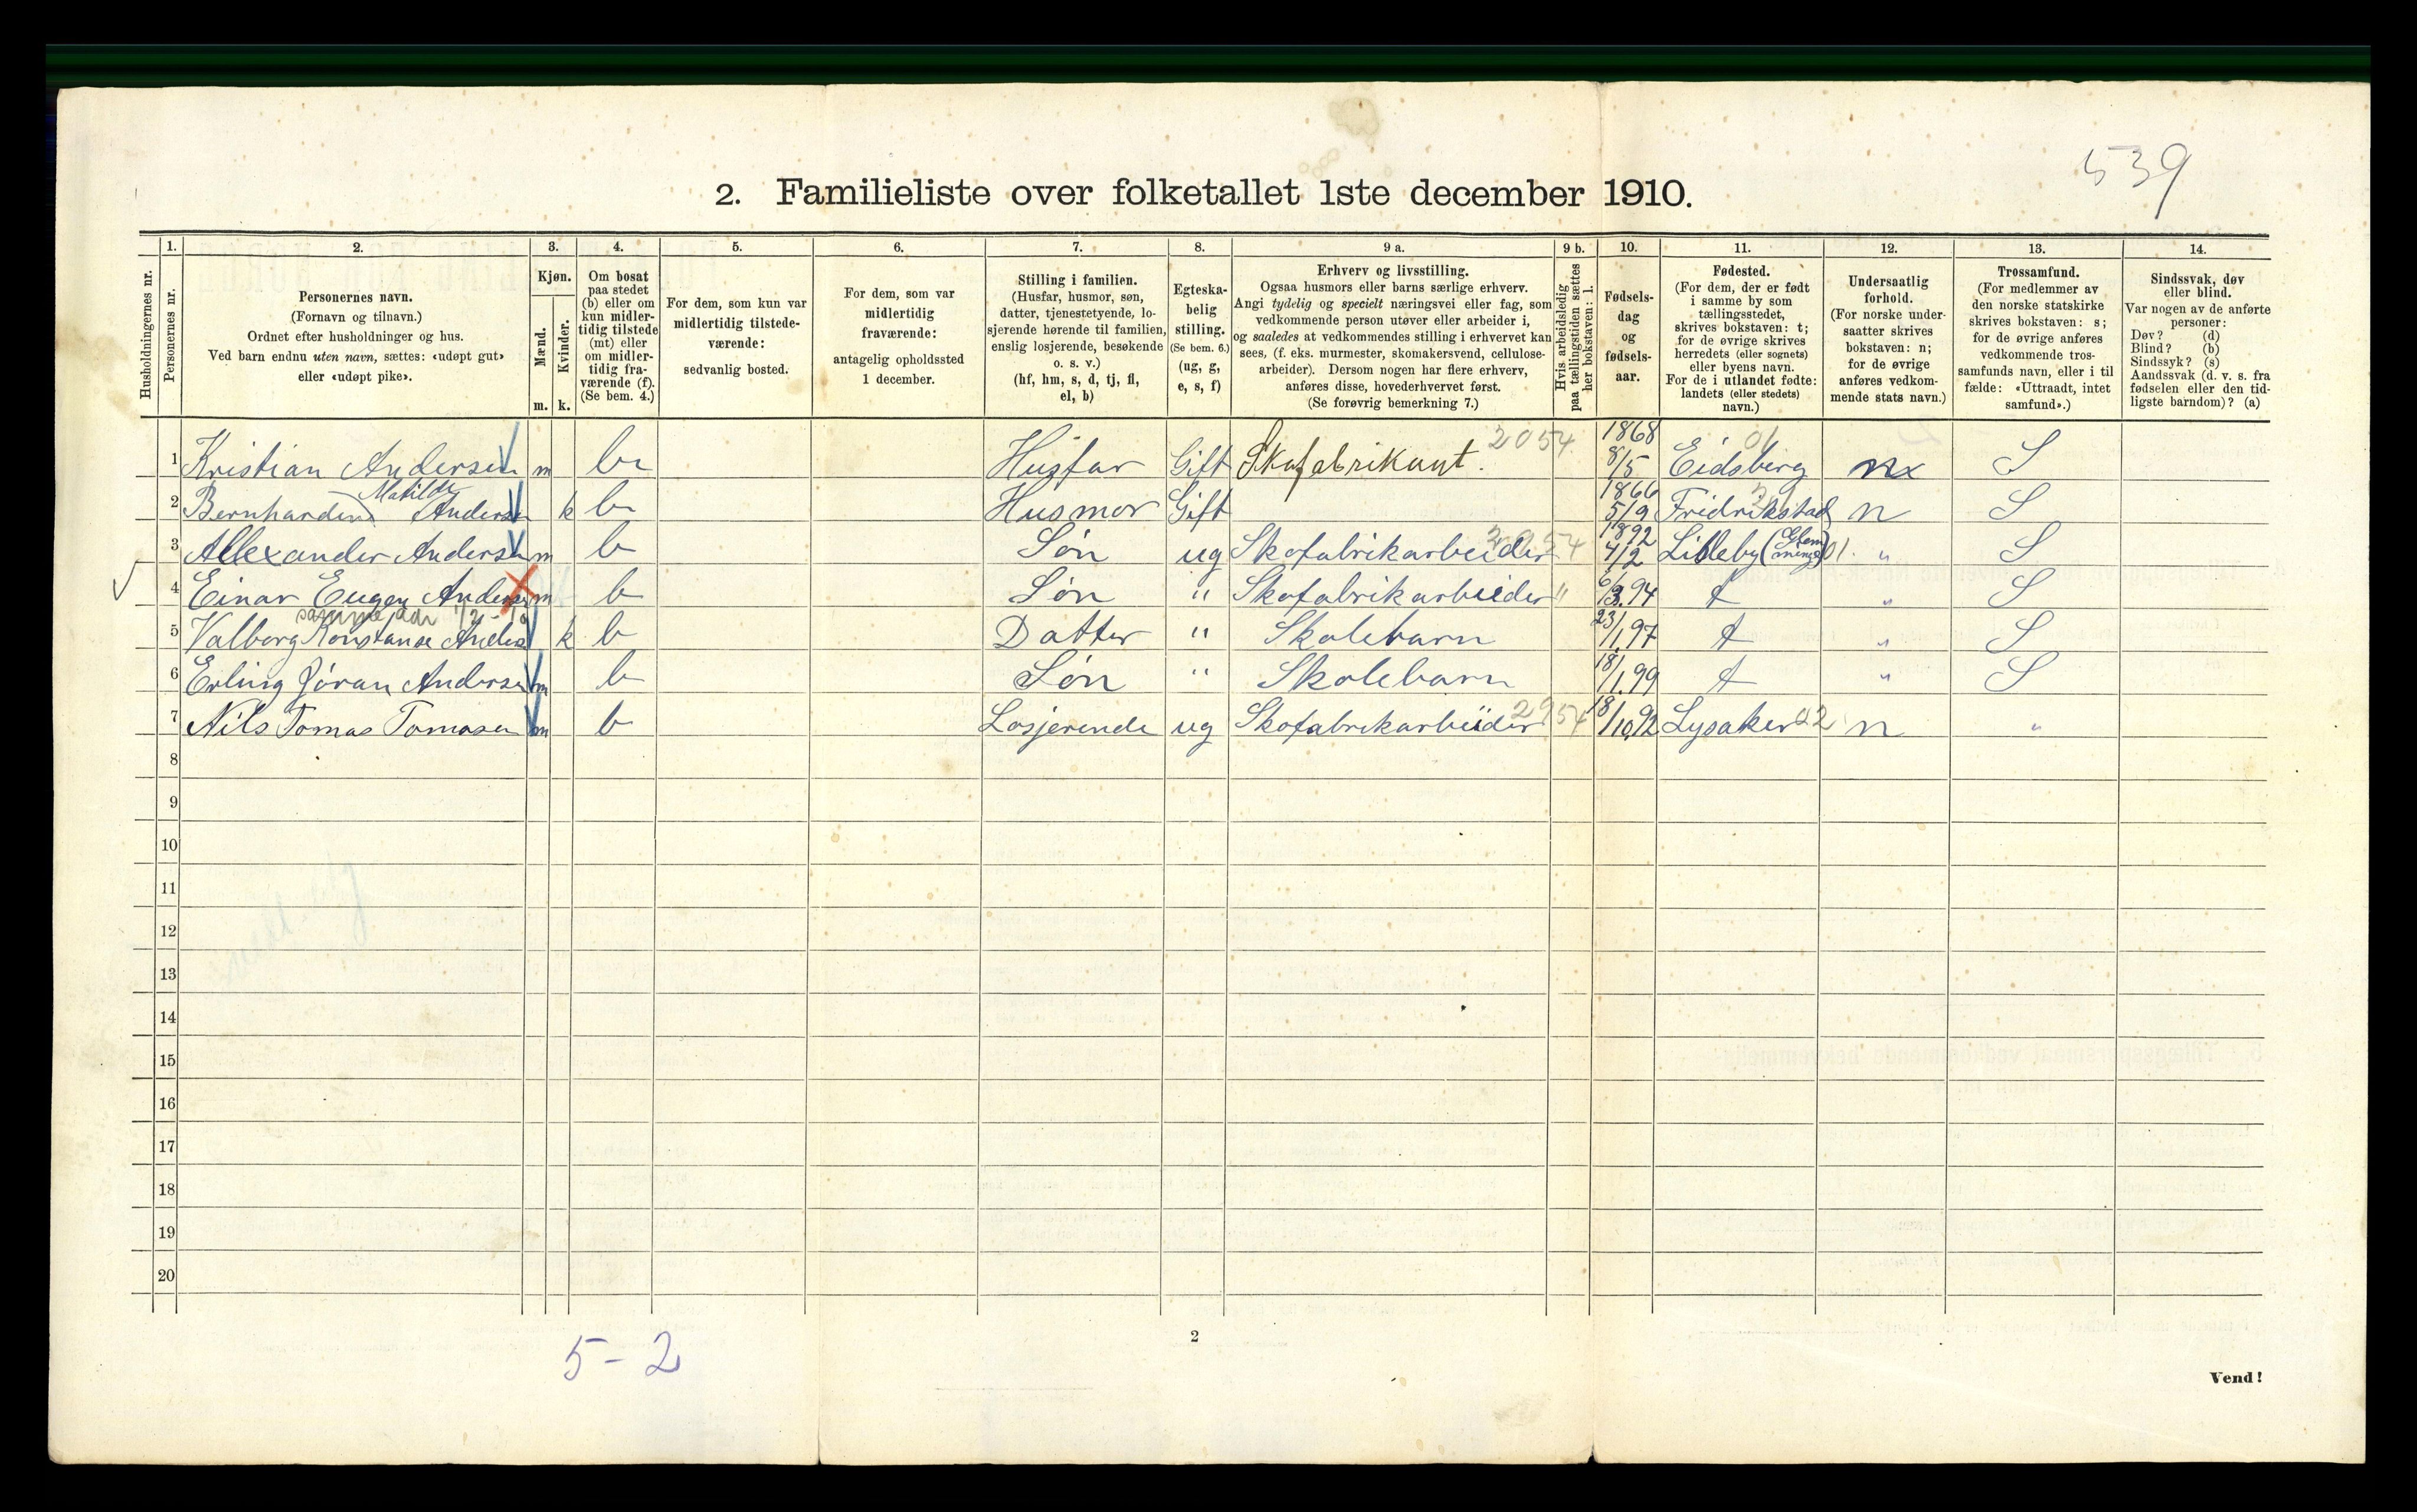 539
2. Familieliste over folketallet 1ste december 1910.
Husholdningernes nr.
1. Personernes nr.
2. Personernes navn.
(Fornavn og tilnavn.)
Ordnet efter husholdninger og hus.
Ved barn endnu uten navn, sættes: «udøpt gut»
eller «udøpt pike».
3. Kjøn.
Mænd. m.
Kvinder. k.
4. Om bosat
paa stedet
(b) eller om
kun midler-
tidig tilstede
(mt) eller
om midler-
tidig fra-
værende (f).
(Se bem. 4.)
5. For dem, som kun var
midlertidig tilstede-
værende:
sedvanlig bosted.
6. For dem, som var
midlertidig
fraværende:
antagelig opholdssted
1 december.
7. Stilling i familien.
(Husfar, husmor, søn,
datter, tjenestetyende, lo-
sjerende hørende til familien,
enslig losjerende, besøkende
o. s. v.)
(hf, hm, s, d, tj, fl,
el, b)
8. Egteska-
belig
stilling.
(Se bem. 6.)
(ug, g,
e, s, f)
9 a. Erhverv og livsstilling.
Ogsaa husmors eller barns særlige erhverv.
Angi tydelig og specielt næringsvei eller fag, som
vedkommende person utøver eller arbeider i,
og saaledes at vedkommendes stilling i erhvervet kan
sees, (f. eks. murmester, skomakersvend, cellulose-
arbeider). Dersom nogen har flere erhverv,
anføres disse, hovederhvervet først.
(Se forøvrig bemerkning 7.)
9 b. Hvis arbeidsledig
paa tællingstiden sættes
her bokstaven: l.
10. Fødsels-
dag
og
fødsels-
aar.
11. Fødested.
(For dem, der er født
i samme by som
tællingsstedet,
skrives bokstaven: t;
for de øvrige skrives
herredets (eller sognets)
eller byens navn.
For de i utlandet fødte:
landets (eller stedets)
navn.)
12. Undersaatlig
forhold.
(For norske under-
saatter skrives
bokstaven: n;
for de øvrige
anføres vedkom-
mende stats navn.)
13. Trossamfund.
(For medlemmer av
den norske statskirke
skrives bokstaven: s;
for de øvrige anføres
vedkommende tros-
samfunds navn, eller i til
fælde: «Uttraadt, intet
samfund».)
14. Sindssvak, døv
eller blind.
Var nogen av de anførte
personer:
Døv? (d)
Blind? (b)
Sindssyk? (s)
Aandssvak (d. v. s. fra
fødselen eller den tid-
ligste barndom)? (a)
1 Kristian Andersen m b Husfar Gift Skofabrikant. 2054 1868 8/5 Eidsberg 01 n S
2 Bernhardine Matilde Andersen k b Husmor Gift 1866 5/9 Fridrikstad n S
3 Allexander Andersen m b Søn ug Skofabrikarbeider 1892 4/2 Lilleby (Glemminge) 01. " S
4 Einar Eugen Andersen m b Søn " Skofabrikarbeider " 6/3.94 t " S
5 Valborg Konstanse Anders k b Datter " Skolebarn 23/1.97 t " S
6 Erling Jøran Andersen m b Søn " Skolebarn 18/1.99 t " S
7 Nils Tomas Tomasen m b Losjerende ug Skofabrikarbeider 2954 18/10.92 Lysaker 02 n "
8
9
10
11
12
13
14
15
16
17
18
19
20
5-2
2
Vend!